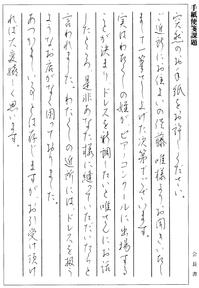 手紙便箋課題
突然のお手紙をお許しください。
ご近所にお住まいの佐藤唯様よりお聞きいたし
まして一筆さし上げた次第でございます。
実はわたくしの娘がピアノコンクールに出場するこ
とが決まりドレスを新調いたいと唯せんにお話
したところ是非あなた様に縫っていただいたらと
言われました。わたくしの近所にはドレスを扱う
ようなお店がなく困っておりました。
あつかましいとは存じますがお引き受け頂け
れば大変嬉しく思います。
会長書